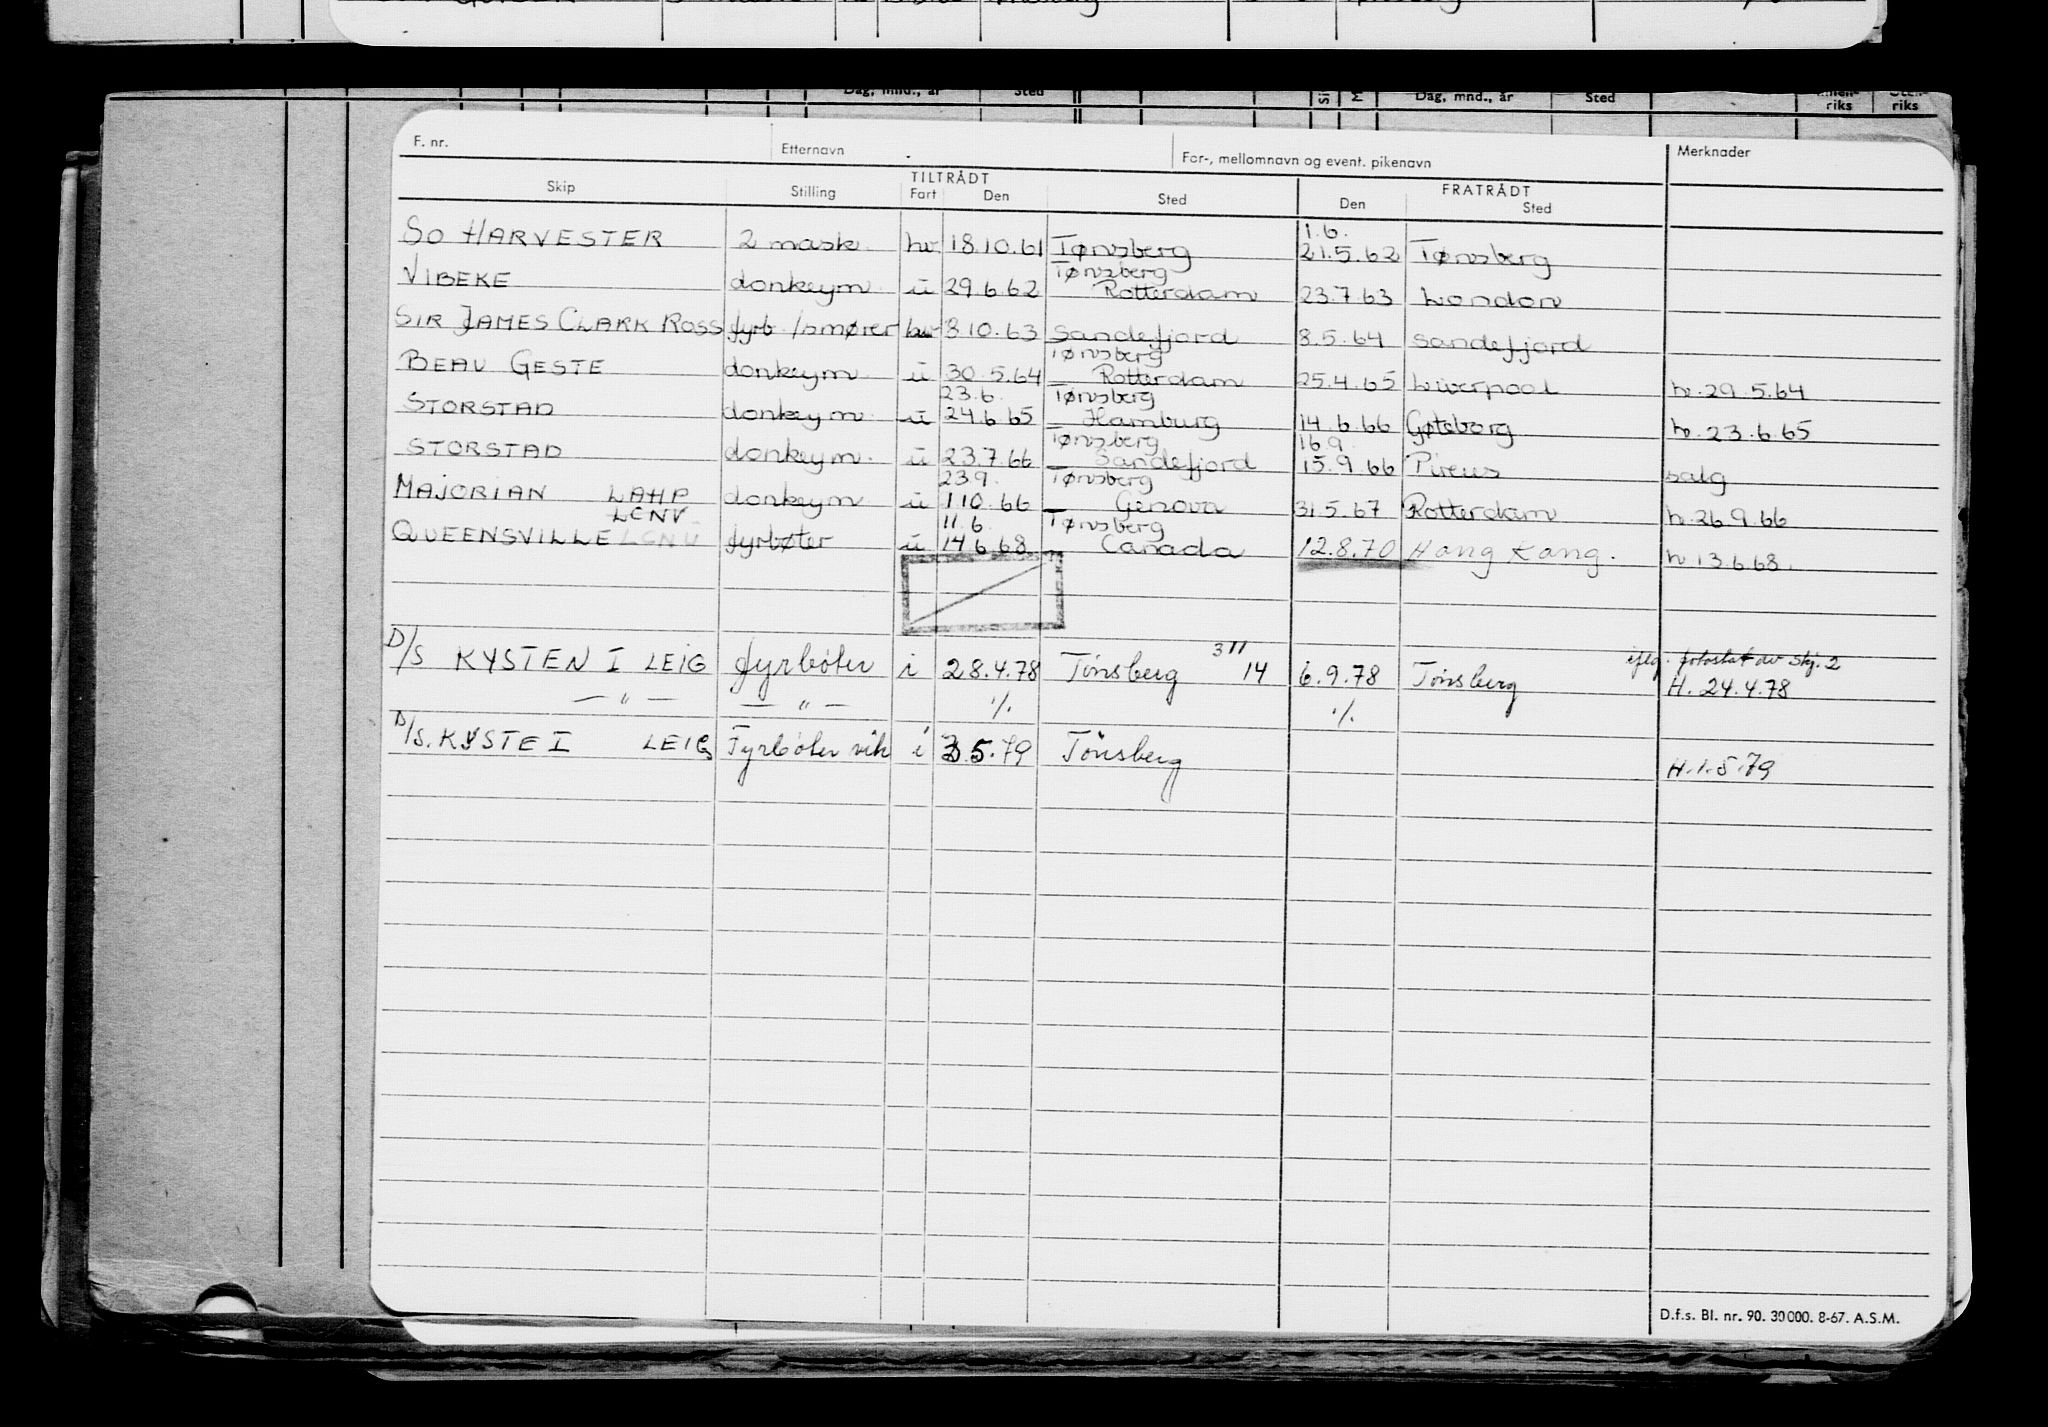 Dag, mnd., år Sted Dag, mnd., år Sted riks riks
F. nr. Etternavn For-, mellomnavn og event. pikenavn Merknader
TILTRÅDT FRATRÅDT
Skip Stilling Fart Den Sted Den Sted
1.6.
SO HARVESTER 2 mask. hv 18.10.61 Tønsberg 21.5.62 Tønsberg
Tønsberg
VIBEKE donkeym u 29.6.62 Rotterdam 23.7.63 London
SIR JAMES CLARK ROSS fyrb/smører hv 3.10.63 Sandefjord 8.5.64 Sandefjord
Tønsberg
BEAU GESTE donkeym u 30.5.64 Rotterdam 25.4.65 Liverpool h.29.5.64
23.6. Tønsberg
STORSTAD donkeym u 24.6.65 Hamburg 14.6.66 Gøteborg h.23.6.65
Tønsberg 16.9.
STORSTAD donkeym. u 23.7.66 Sandefjord 15.9.66 Pireus salg
23.9. Tønsberg
MAJORIAN LAHP donkeym u 1.10.66 Genova 31.5.67 Rotterdam h.26.9.66
LCNV 11.6. Tønsberg
QUEENSVILLE LCNU fyrbøter u 14.6.68 Canada 12.8.70 Hong Kong. h 13.6.68.
311 iflg. fotostat av Skj. 2
D/S KYSTEN I LEIG fyrbøter i 28.4.78 Tönsberg 14 6.9.78 Tönsberg H. 24.4.78
— " — — " — ./. ./.
D/S. KYSTE I LEIG Fyrbøter vik i 3.5.79 Tönsberg H.1.5.79
D.f.s. Bl. nr. 90. 30000. 8-67. A.S.M.